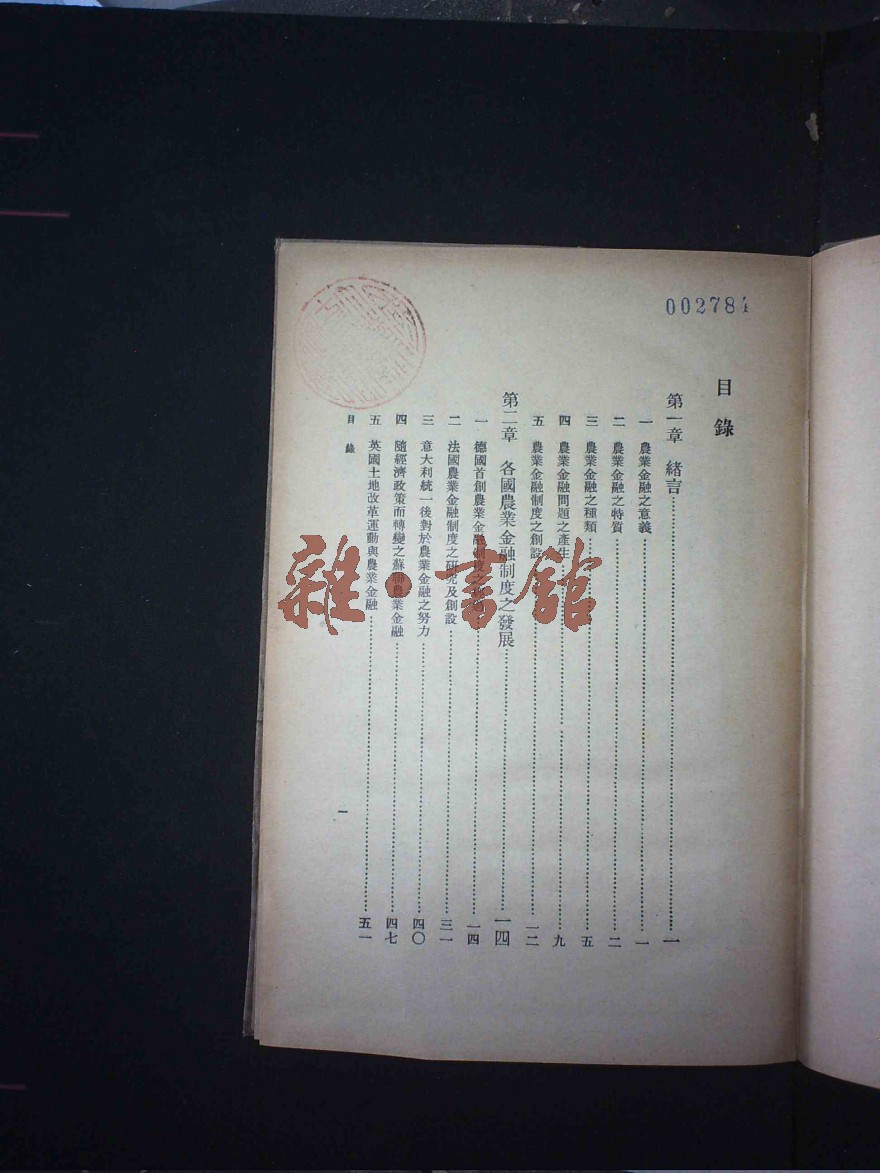 002784
目錄
第一章 緒言……一
一 農業金融之意義……一
二 農業金融之特質……二
三 農業金融之種類……五
四 農業金融問題之產生……九
五 農業金融制度之創設……一二
第二章 各國農業金融制度之發展……一四
一 德國首創農業金融制度之……一四
二 法國農業金融制度之研究及創設……三一
三 意大利統一後對於農業金融之努力……四〇
四 隨經濟政策而轉變之蘇聯農業金融……四七
五 英國土地改革運動與農業金融……五一
目錄
一
雜·書館